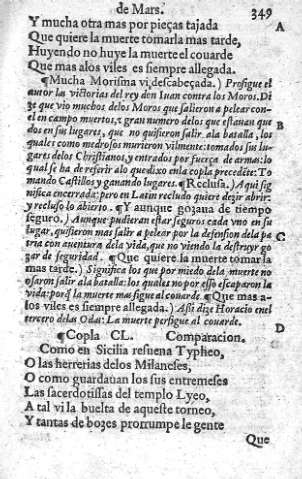 de Mars. 349
Y mucha otra mas por pieças tajada A
Que quiere la muerte tomarla mas tarde,
Huyendo no huye la muerte el couarde
Que mas alos viles es siempre allegada.
¶Mucha Morisma vi descabeçada.) Prosigue el
autor las victorias del rey don Iuan contra los Moros. Di
ze que vio muchos delos Moros que salieron a pelear con-
el en campo muertos, z gran numero delos que estauan que B
dos en sus lugares, que no quisieron salir ala batalla, los
quales como medrosos murieron vilmente: tomados sus lu-
gares delos Christianos, y entrados por fuerça de armas: lo
qual se ha de referir alo que dixo enla copla precedẽte: To
mando Castillos y ganando lugares. ¶Reclusa.) Aqui sig
nifica encerrada: pero en Latin recludo quiere dezir abrir:
y recluso lo abierto. ¶Y aunque gozaua de tiempo
seguro.) Aunque pudieran estar seguros cada vno en su
lugar, quisieron mas salir a pelear por la defension dela pa C
tria con auentura dela vida, que no viendo la destruyr go
zar de seguridad. ¶Que quiere la muerte tomarla
mas tarde.) Significa los que por miedo dela muerte no
osaron salir ala batalla: los quales no por esso escaparon la
vida: porq̃ la muerte mas sigue al couarde ¶Que mas a-
los viles es siempre allegada.) Assi dize Horacio enel
tercero delas Odas: La muerte persigue al couarde.
¶Copla CL. Comparacion. D
Como en Sicilia resuena Typheo,
O las herrerias delos Milaneses,
O como guardauan los sus entremeses
Las sacerdotissas del templo Lyeo,
A tal vi la buelta de aqueste torneo,
Y tantas de bozes prorrumpe le gente
Que